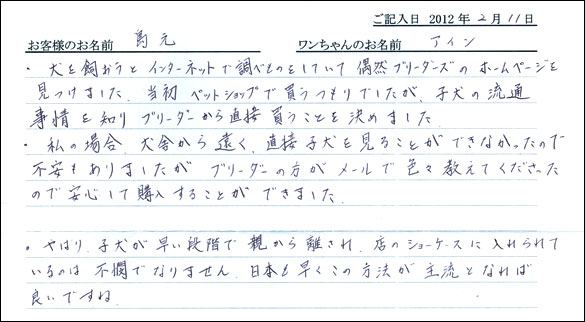 ご記入日 2012年2月11日
お客様のお名前 島元 ワンちゃんのお名前 アイン
・犬を飼おうとインターネットで調べものをしていて偶然ブリーダーズのホームページを
見つけました。当初ペットショップで買うつもりでしたが、子犬の流通
事情を知りブリーダーから直接買うことを決めました。
・私の場合、犬舎から遠く、直接子犬を見ることができなかったので
不安もありましたがブリーダーの方がメールで色々教えてくださった
ので安心して購入することができました。
・やはり、子犬が早い段階で親から離され、店のショーケースに入れられて
いるのは不憫でなりません。日本も早くこの方法が主流となれば
良いですね。